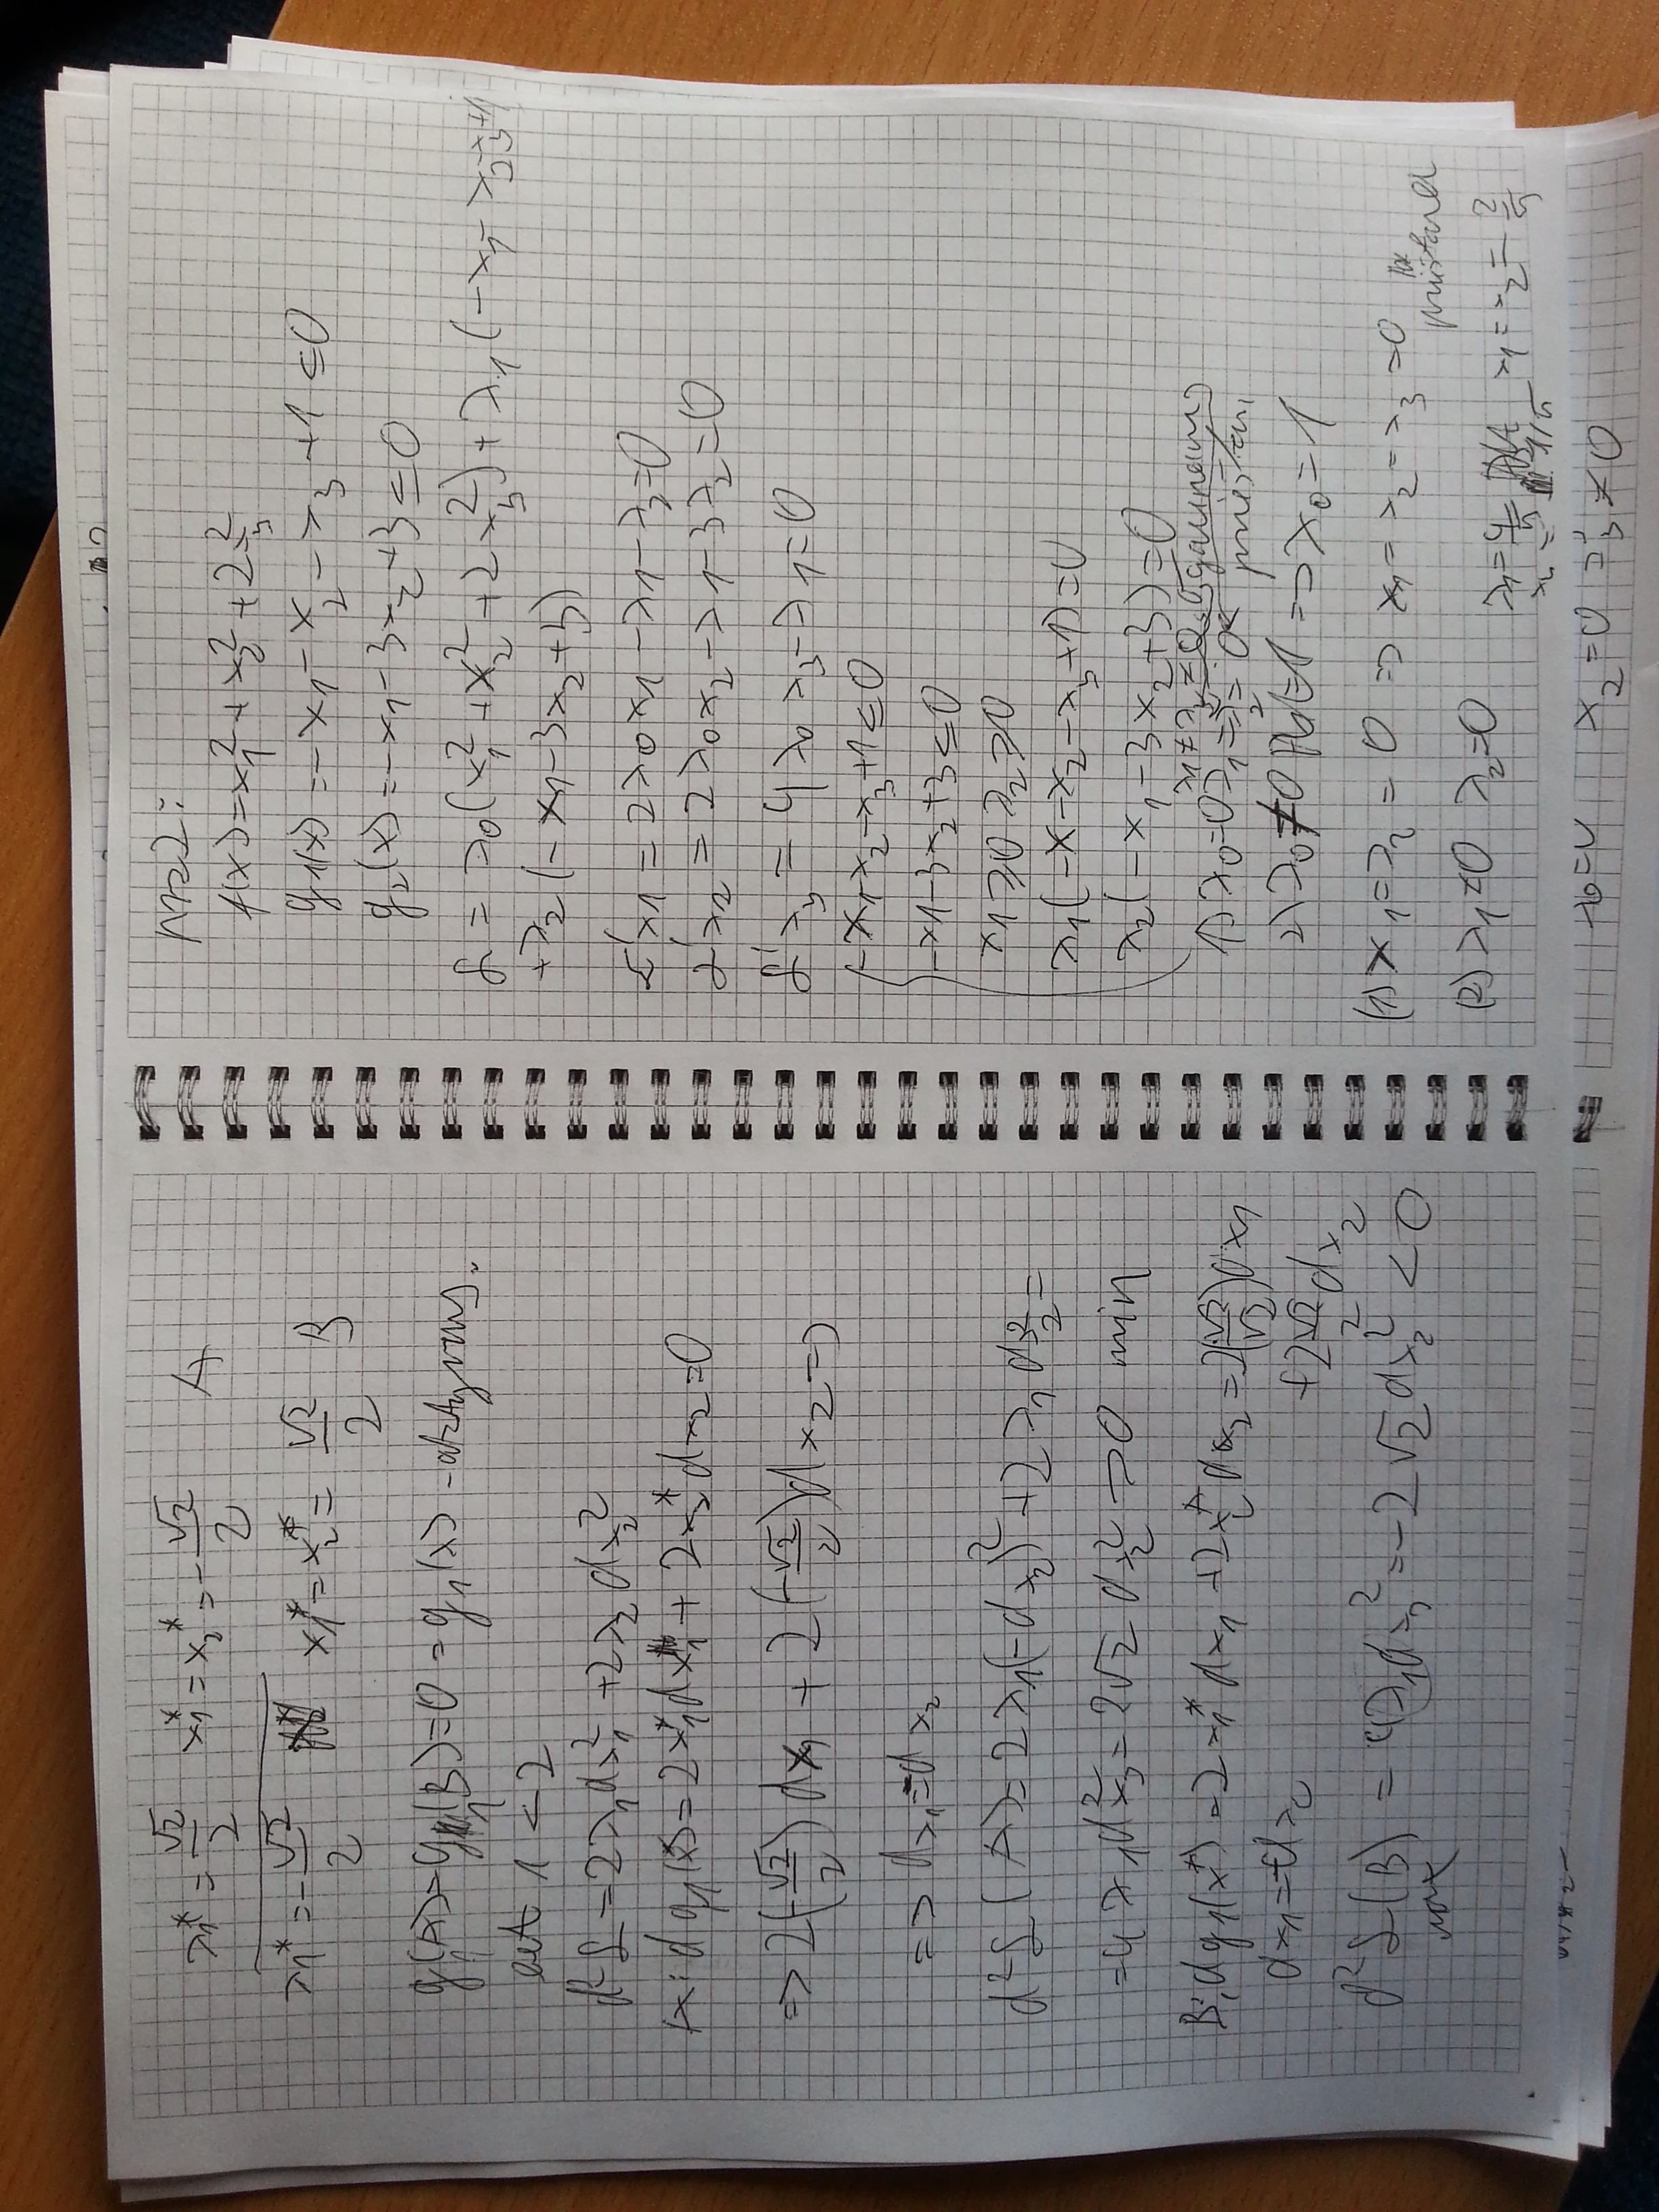 λ1* = √2/2   x1* = x2* = -√2/2   A
λ1* = -√2/2   x1* = x2* = √2/2   B
g1(A) = g1(B) = 0 = g1(x) - aktyvus.
1 < 2
d²L = 2λ1dx1² + 2λ2dx2²
A: dg1(x*) = 2x1*dx1 + 2x2*dx2 = 0
=> 2(-√2/2)dx1 + 2(-√2/2)dx2 =>
=> dx1 = -dx2
d²L(A) = 2λ1(-dx2)² + 2λ1dx2² =
= 4λ1dx2² = 2√2 dx2² >0 min
B: dg1(x*) = 2x1*dx1 + 2x2*dx2 = 2(√2/√2)dx1
+ 2√2/2 dx2
dx1 = -dx2
d²L(B) = 4λ1dx2² = -2√2 dx2² < 0
max
f(x) = x1² + x2² + 2x3²
g1(x) = -x1 - x2 - x3 + 1 ≤ 0
g2(x) = -x1 - 3x2 + 3 ≤ 0
L = λ0(x1² + x2² + 2x3²) + λ1(-x1 - x2 - x3 + 1)
+ λ2(-x1 - 3x2 + 3)
L'x1 = 2λ0x1 - λ1 - λ2 = 0
L'x2 = 2λ0x2 - λ1 - 3λ2 = 0
L'x3 = 4λ0x3 - λ1 = 0
-x1 - x2 - x3 + 1 ≤ 0
-x1 - 3x2 + 3 ≤ 0
λ1 ≥ 0 λ2 ≥ 0
λ1(-x - x2 - x3 + 1) = 0
λ2(-x1 - 3x2 + 3) = 0
gauname
1) λ0 = 0 λ1 = λ2 = 0
2) λ0 ≠ 0 => λ0 = 1
(1) λ1 = λ2 = 0 => x1 = x2 = x3 = 0
prieštara
(2) λ1 ≠ 0 λ2 = 0
λ1 = 4/5 x1 = x2 = 2/5
x3 = 1/5
x2 = 0